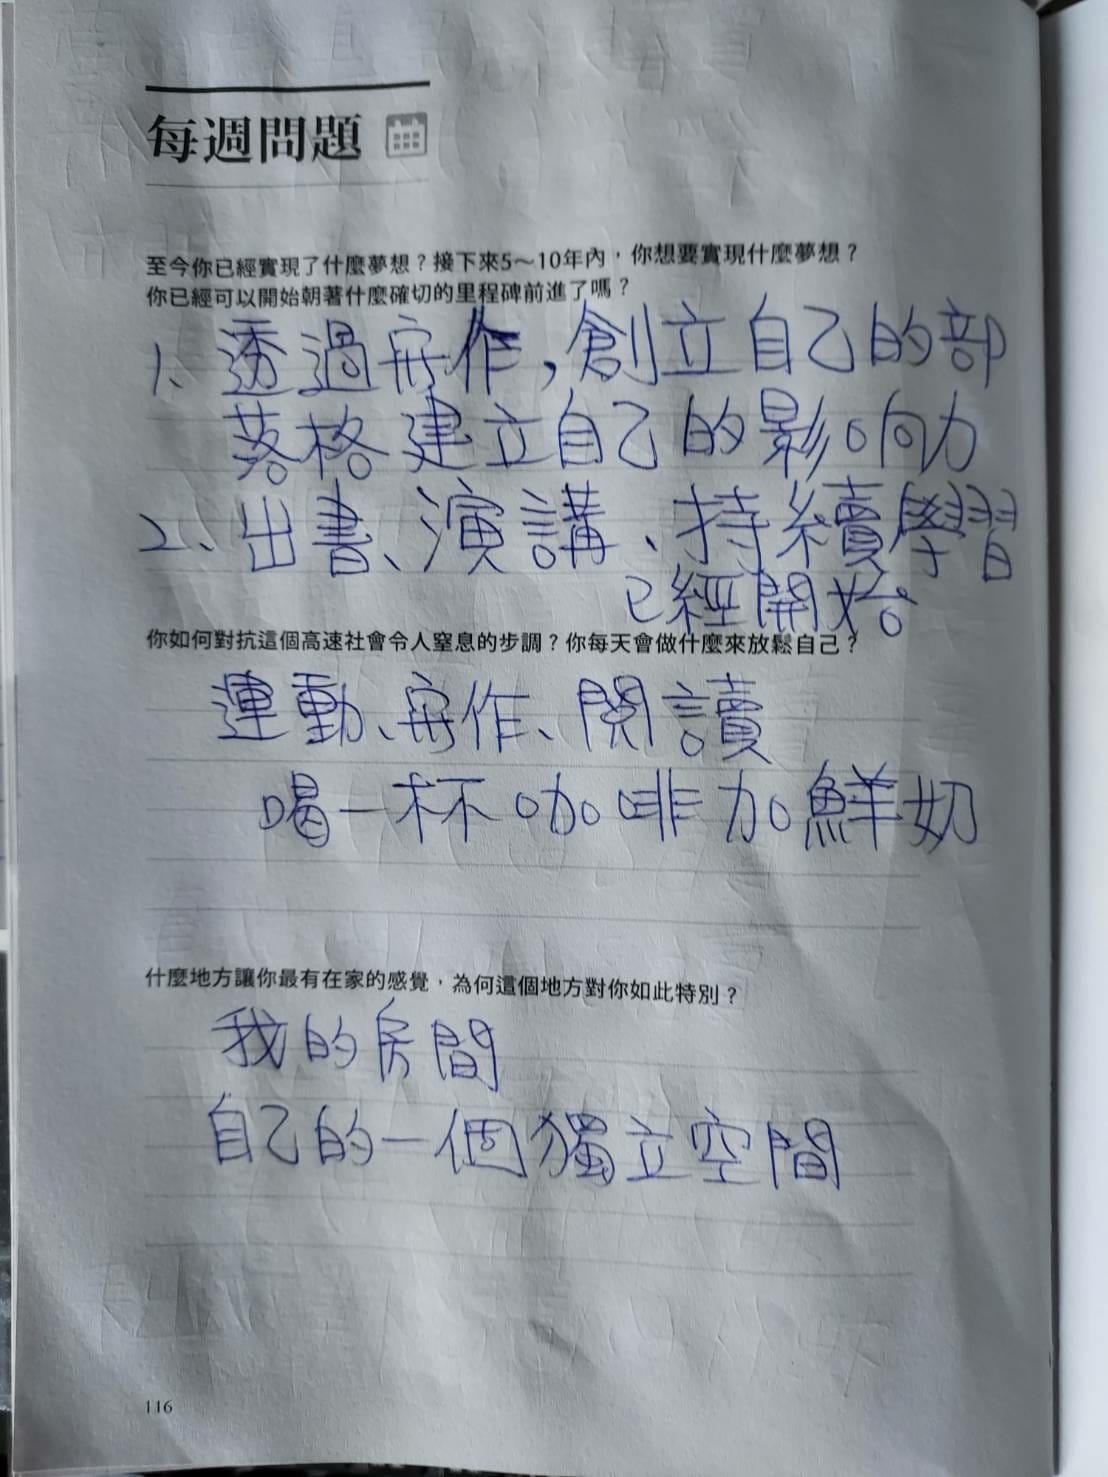 每週問題
至今你已經實現了什麼夢想？接下來5～10年內，你想要實現什麼夢想？
你已經可以開始朝著什麼確切的里程碑前進了嗎？
1、透過寫作，創立自己的部
落格建立自己的影响力
2、出書、演講、持續學習
已經開始
你如何對抗這個高速社會令人窒息的步調？你每天會做什麼來放鬆自己？
運動、寫作、閱讀
喝一杯咖啡加鮮奶
什麼地方讓你最有在家的感覺，為何這個地方對你如此特別？
我的房間
自己的一個獨立空間
116